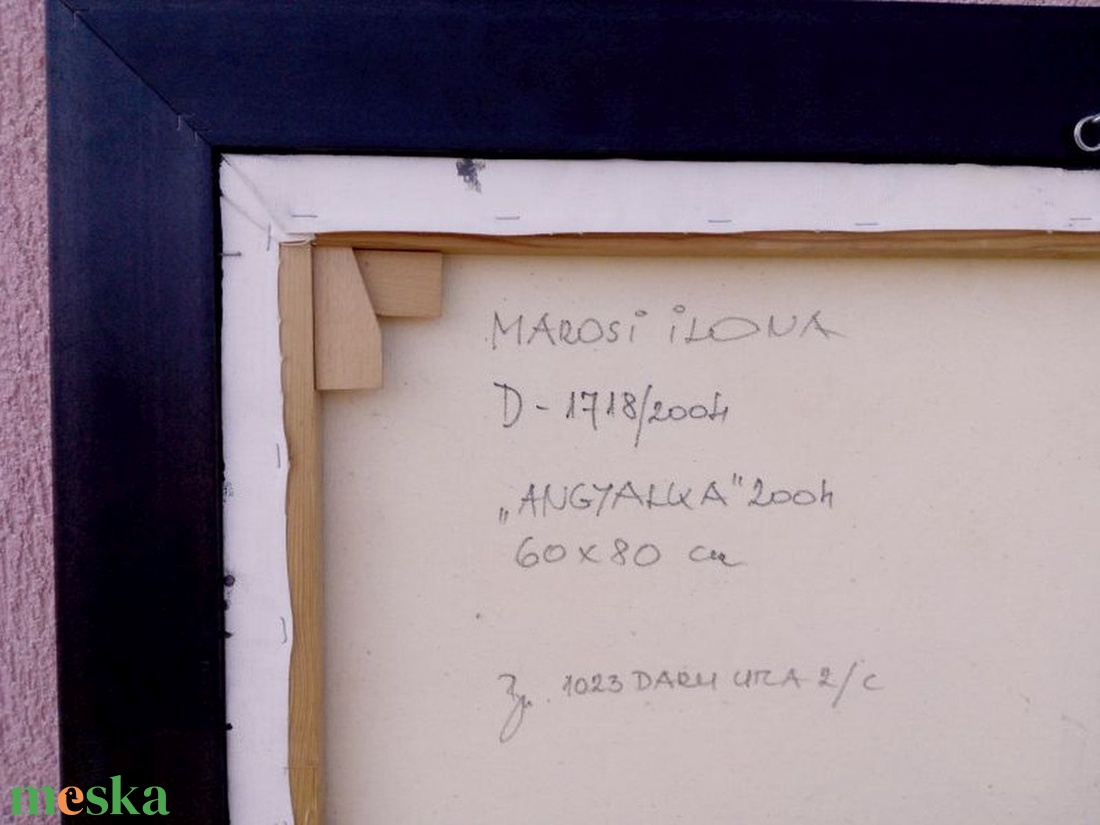 MAROSI iLONA
D - 1718/2004
„ANGYALKA" 2004
60 x 80 cm
1023 DARU UTCA 2/C
meska